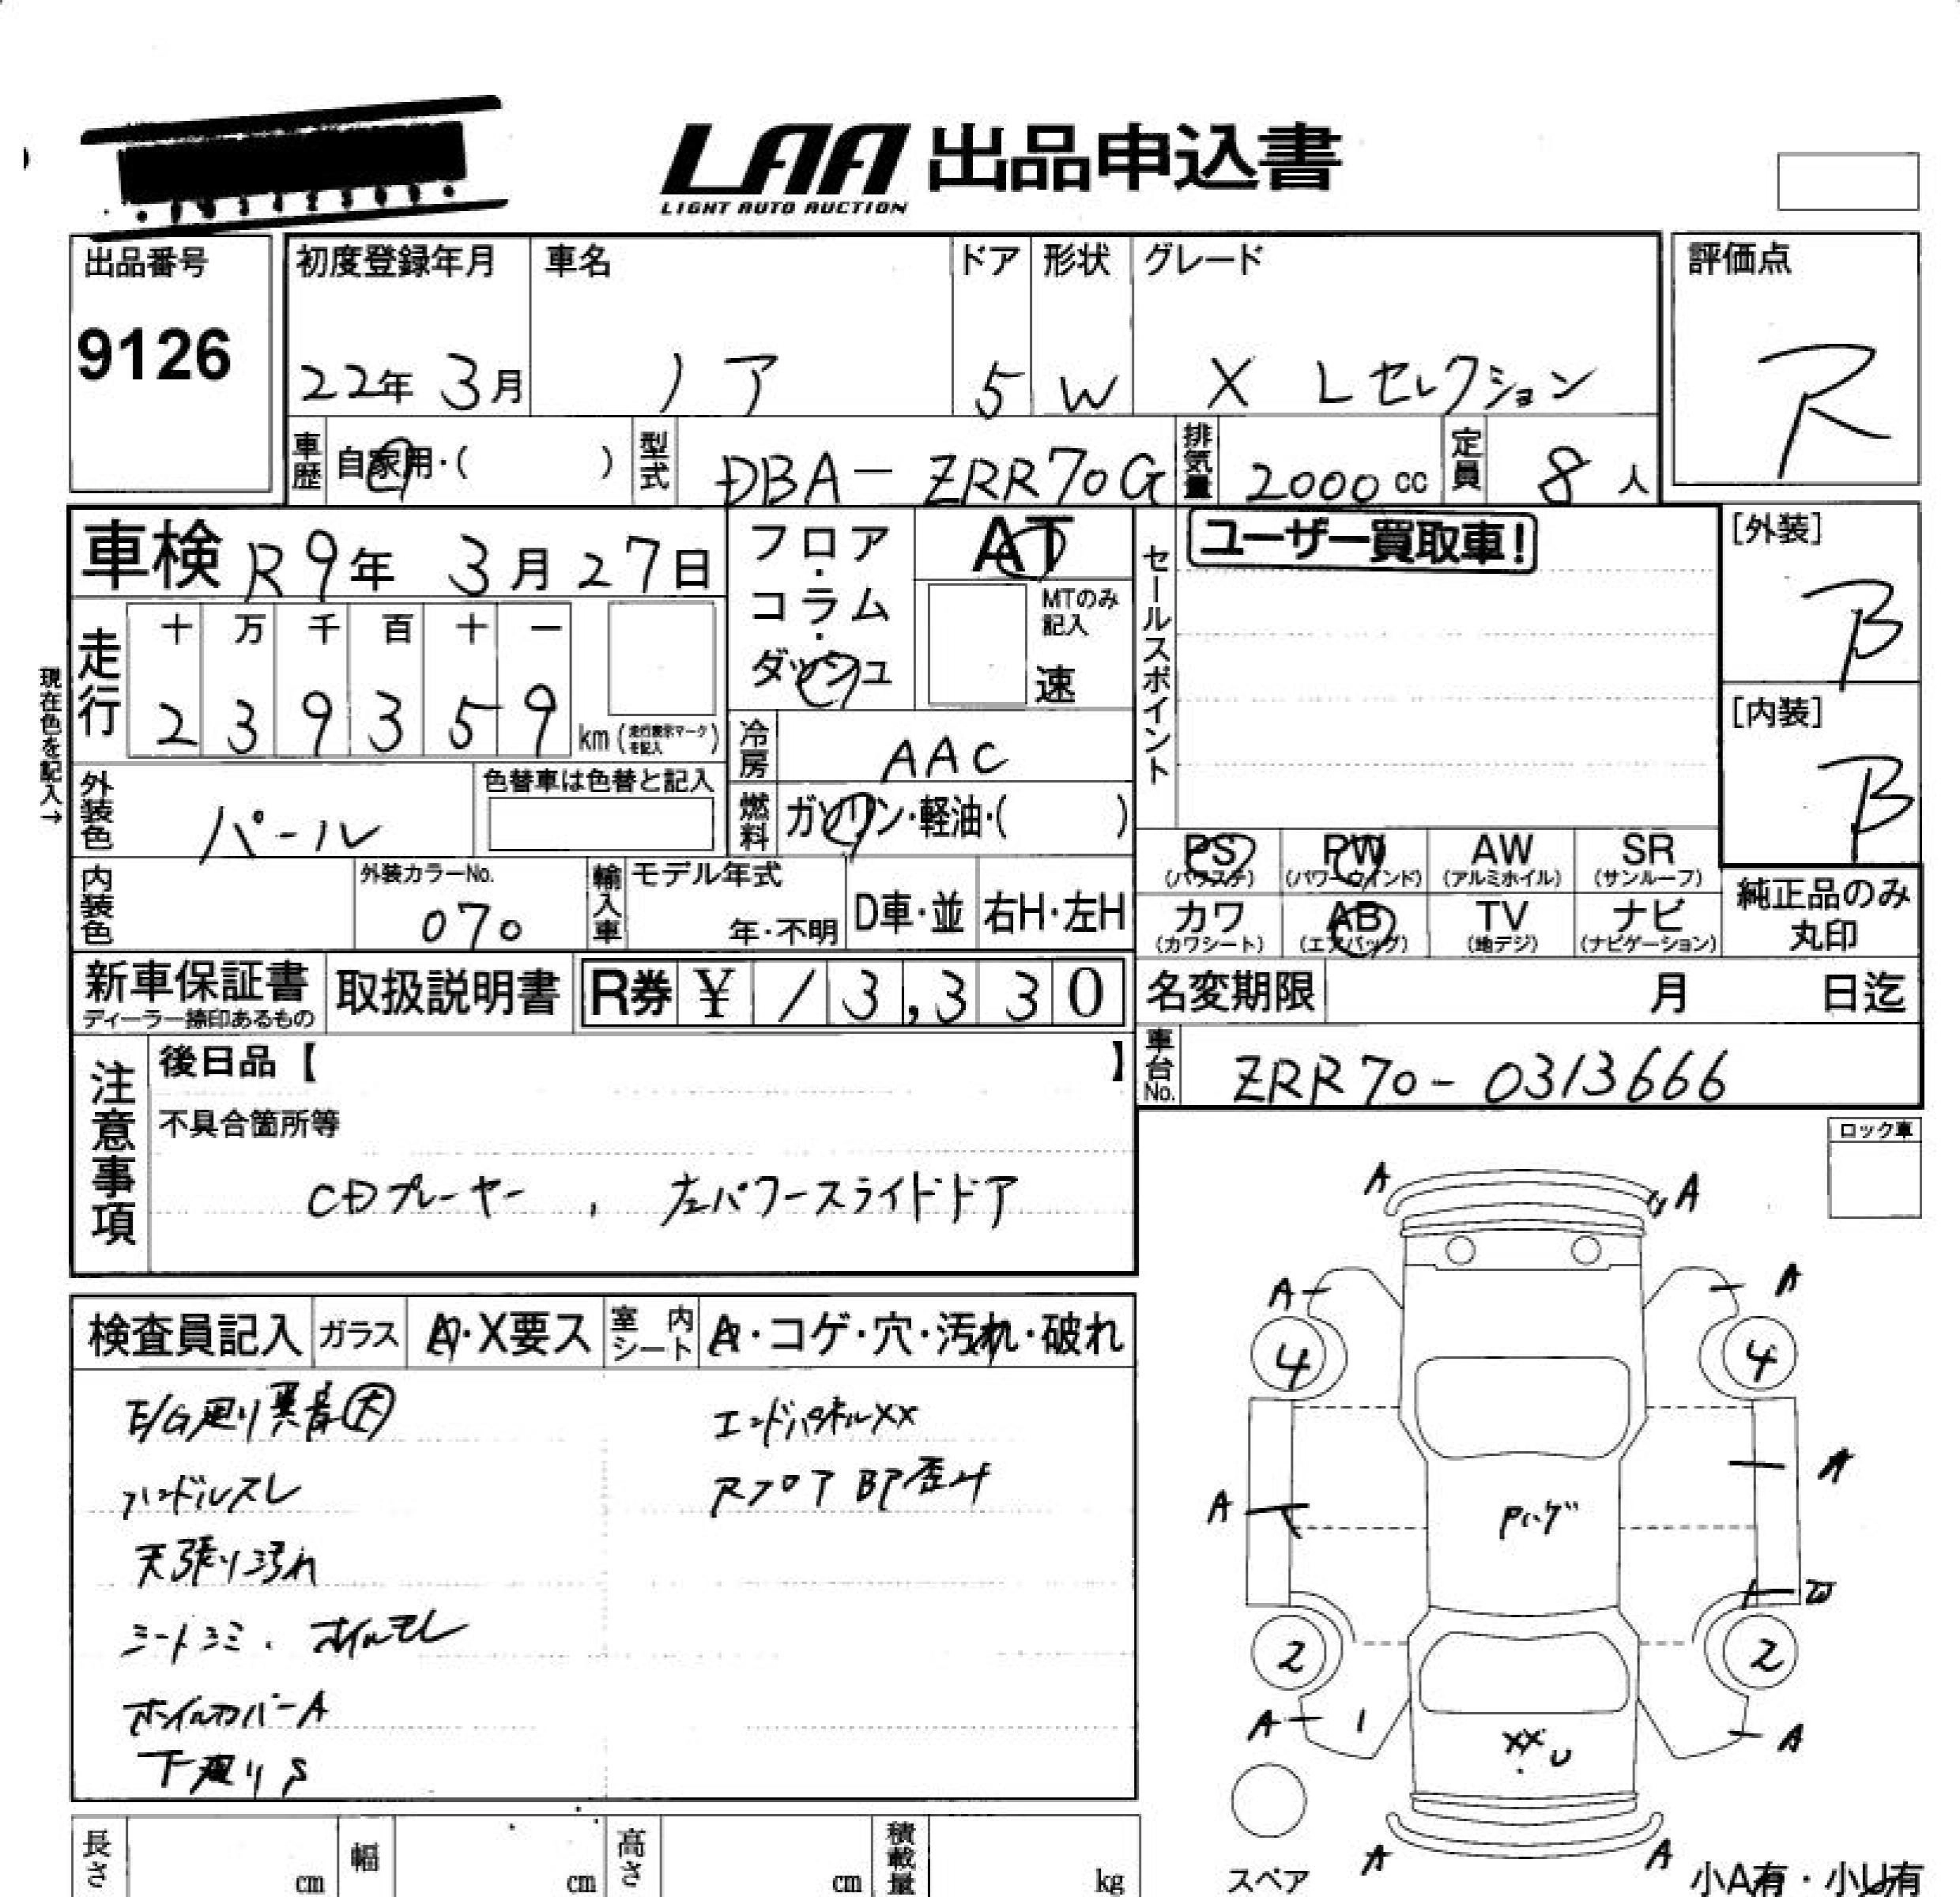 LAA 出品申込書
LIGHT AUTO AUCTION
出品番号
9126
初度登録年月
22年 3月
車名
ノア
ドア
5
形状
W
グレード
X Lセレクション
評価点
R
車歴
自家用・( )
型式
DBA-ZRR70G
排気量
2000 cc
定員
8 人
車検 R9年 3月 27日
フロア・コラム・ダッシュ
AT
MTのみ記入
速
セールスポイント
ユーザー買取車!
[外装]
B
[内装]
B
現在色を記入→
走行
十 万 千 百 十 一
2 3 9 3 5 9 km (走行表示マークを記入)
冷房
AAC
外装色
パール
色替車は色替と記入
燃料
ガソリン・軽油・( )
PS (パワステ)
PW (パワーウインド)
AW (アルミホイル)
SR (サンルーフ)
カワ (カワシート)
AB (エアバッグ)
TV (地デジ)
ナビ (ナビゲーション)
純正品のみ丸印
内装色
外装カラーNo.
070
輸入車
モデル年式
年・不明
D車・並
右H・左H
新車保証書
ディーラー捺印あるもの
取扱説明書
R券 ¥ 13,330
名変期限 月 日迄
車台No.
ZRR70-0313666
注意事項
後日品【 】
不具合箇所等
CDプレーヤー , 左パワースライドドア
ロック車
検査員記入
ガラス
A・X要ス
室内シート
A・コゲ・穴・汚れ・破れ
E/G廻り異音大
ハンドルスレ
天張り汚れ
シートシミ.
ホイルカバーA
下廻りS
エンドパネルXX
Rフロア BP歪み
A A
A A
4 4
A A
Pハゲ
2 2
A A
XX U
A A
スペア
小A有・小U有
長さ cm
幅 cm
高さ cm
積載量 kg